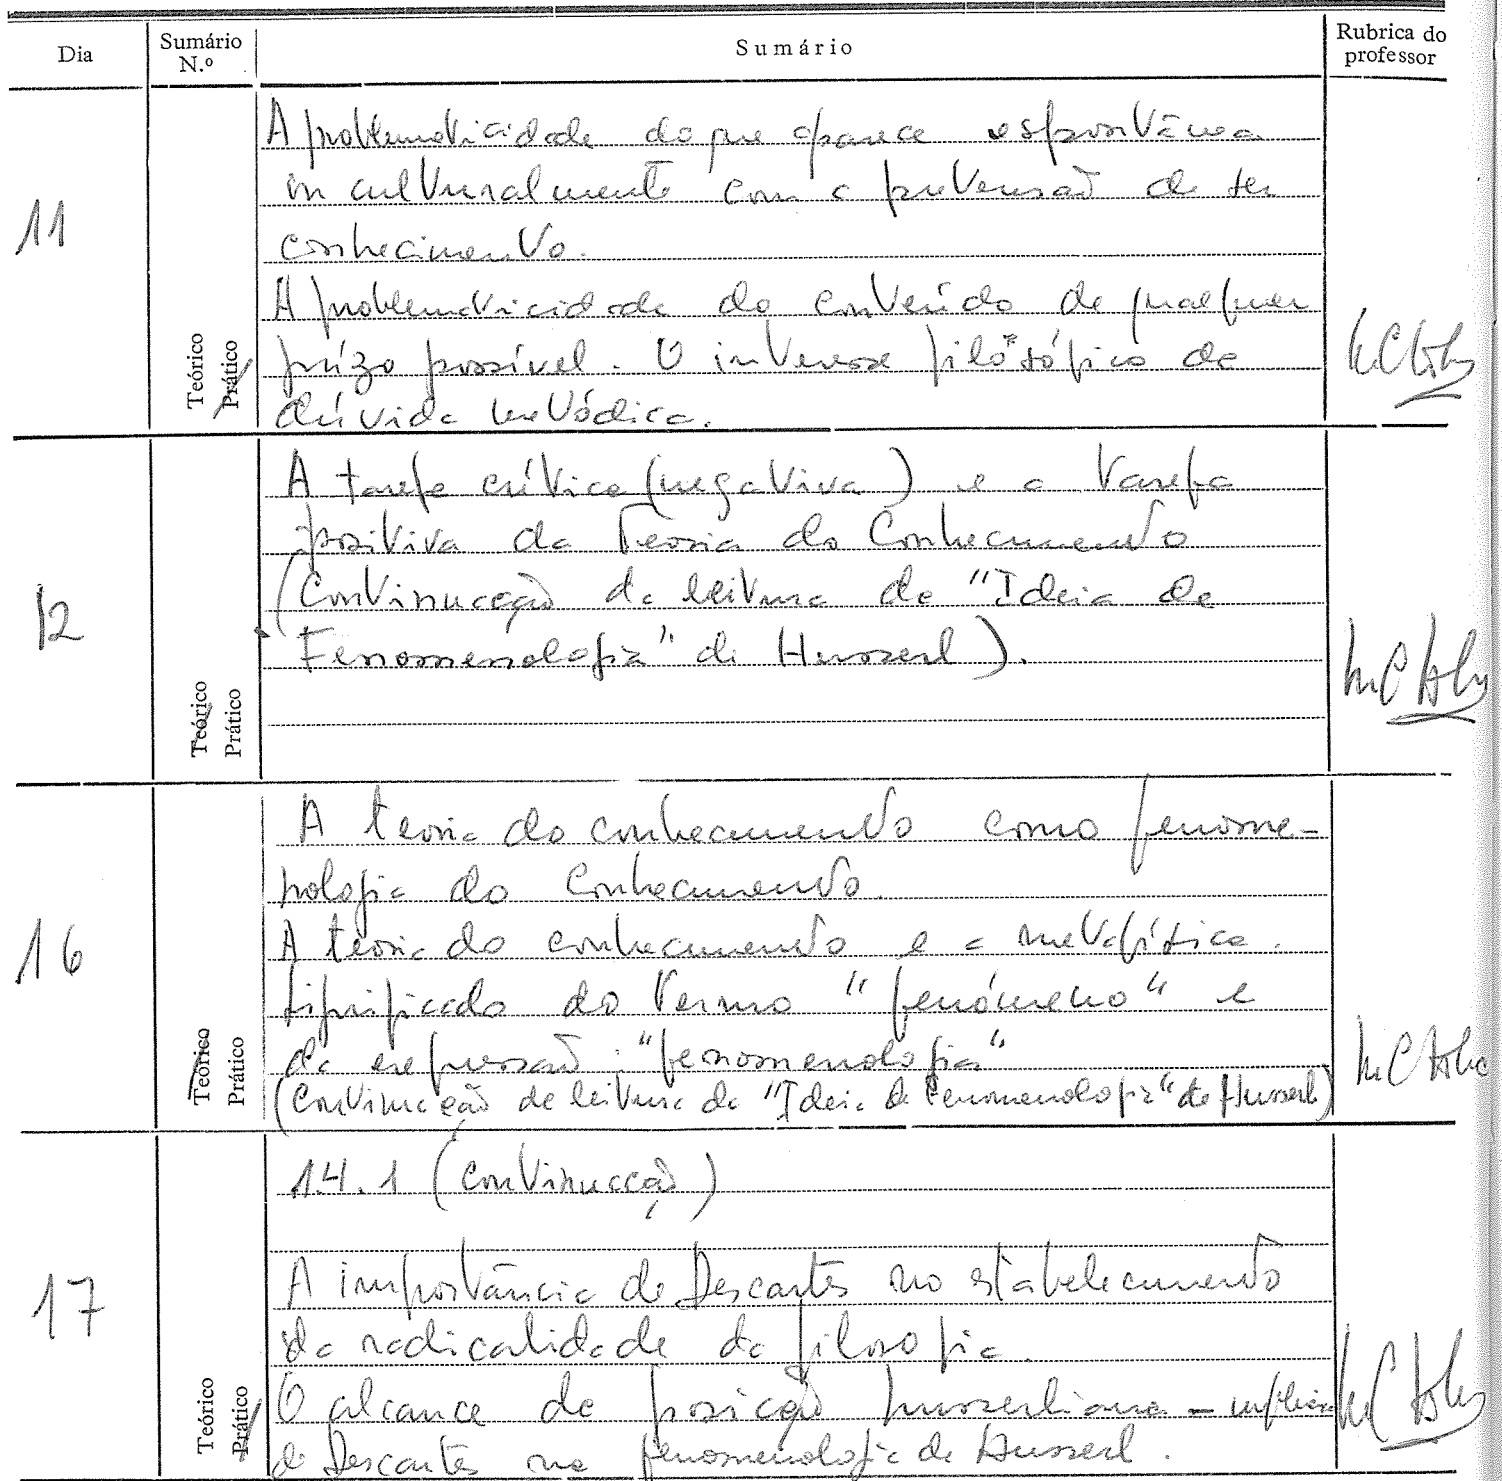 Dia
Sumário N.º
Sumário
Rubrica do professor
11
A problematicidade do que aparece espontânea
in culturalmente com a pretensão de ser
conhecimento.
A problematicidade do conteúdo de qualquer
juízo possível. O interesse filosófico da
dúvida metódica.
Teórico
Prático
12
A tarefa crítica (negativa) e a tarefa
positiva da Teoria do Conhecimento
(Continuação da leitura da "Ideia da
Fenomenologia" de Husserl).
Teórico
Prático
16
A teoria do conhecimento como fenome-
nologia do conhecimento.
A teoria do conhecimento e a metafísica.
Significado do termo "fenómeno" e
da expressão: "fenomenologia"
(Continuação da leitura da "Ideia da Fenomenologia" de Husserl)
Teórico
Prático
17
1.4.1 (continuação)
A importância de Descartes no estabelecimento
da radicalidade da filosofia.
O alcance da posição husserliana –
de Descartes na fenomenologia de Husserl.
Teórico
Prático